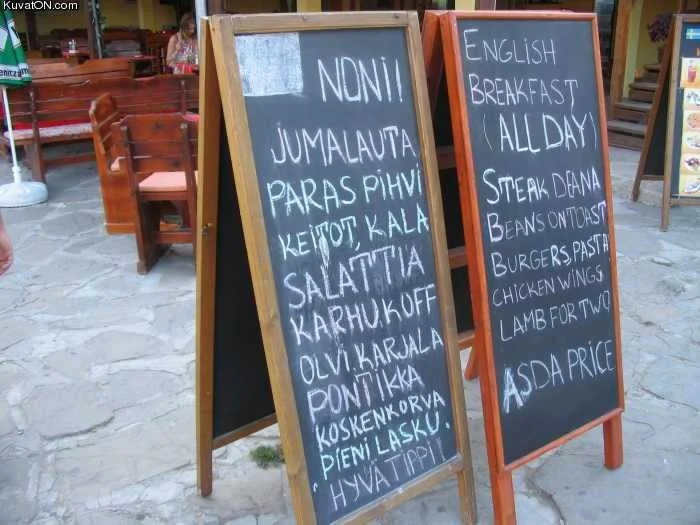 KuvatON.com
NONII
JUMALAUTA
PARAS PIHVI
KEITOT, KALA
SALATTIA
KARHU KOFF
OLVI KARJALA
PONTIKKA
KOSKENKORVA
PIENI LASKU.
HYVÄ TIPPI!
ENGLISH
BREAKFAST
(ALL DAY)
STEAK DEANA
BEANS ON TOAST
BURGERS, PASTA
CHICKEN WINGS
LAMB FOR TWO
ASDA PRICE